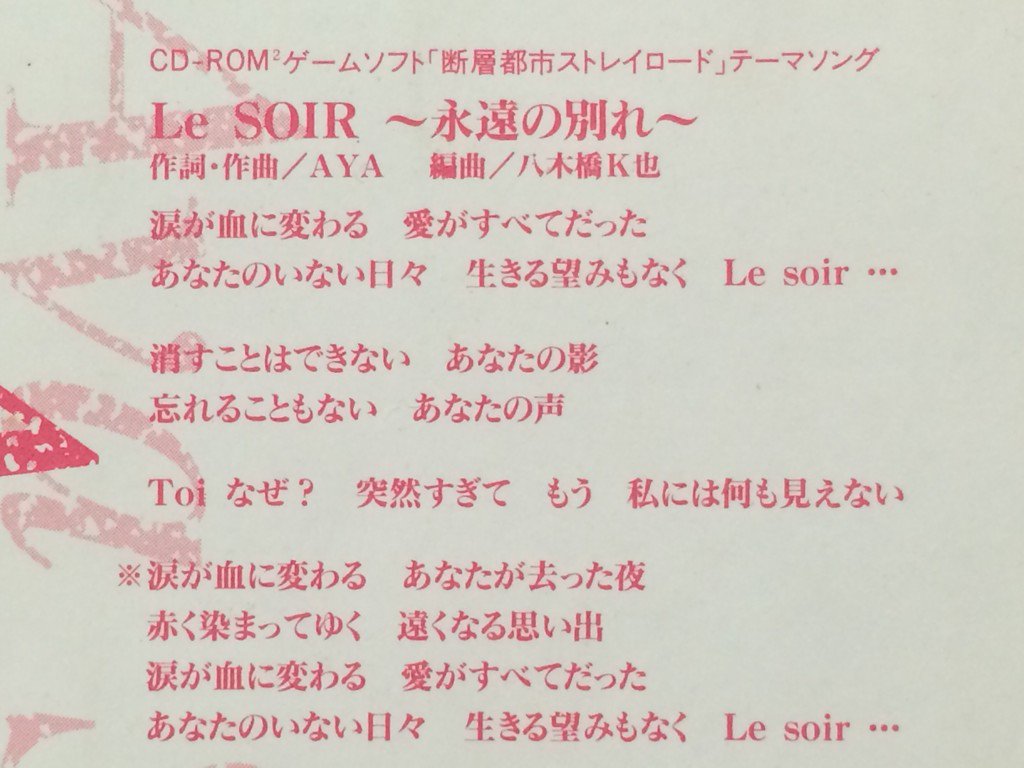 CD-ROM²ゲームソフト「断層都市ストレイロード」テーマソング
Le SOIR ～永遠の別れ～
作詞・作曲／AYA　編曲／八木橋K也
涙が血に変わる　愛がすべてだった
あなたのいない日々　生きる望みもなく　Le soir …
消すことはできない　あなたの影
忘れることもない　あなたの声
Toi なぜ？　突然すぎて　もう　私には何も見えない
※涙が血に変わる　あなたが去った夜
赤く染まってゆく　遠くなる思い出
涙が血に変わる　愛がすべてだった
あなたのいない日々　生きる望みもなく　Le soir …